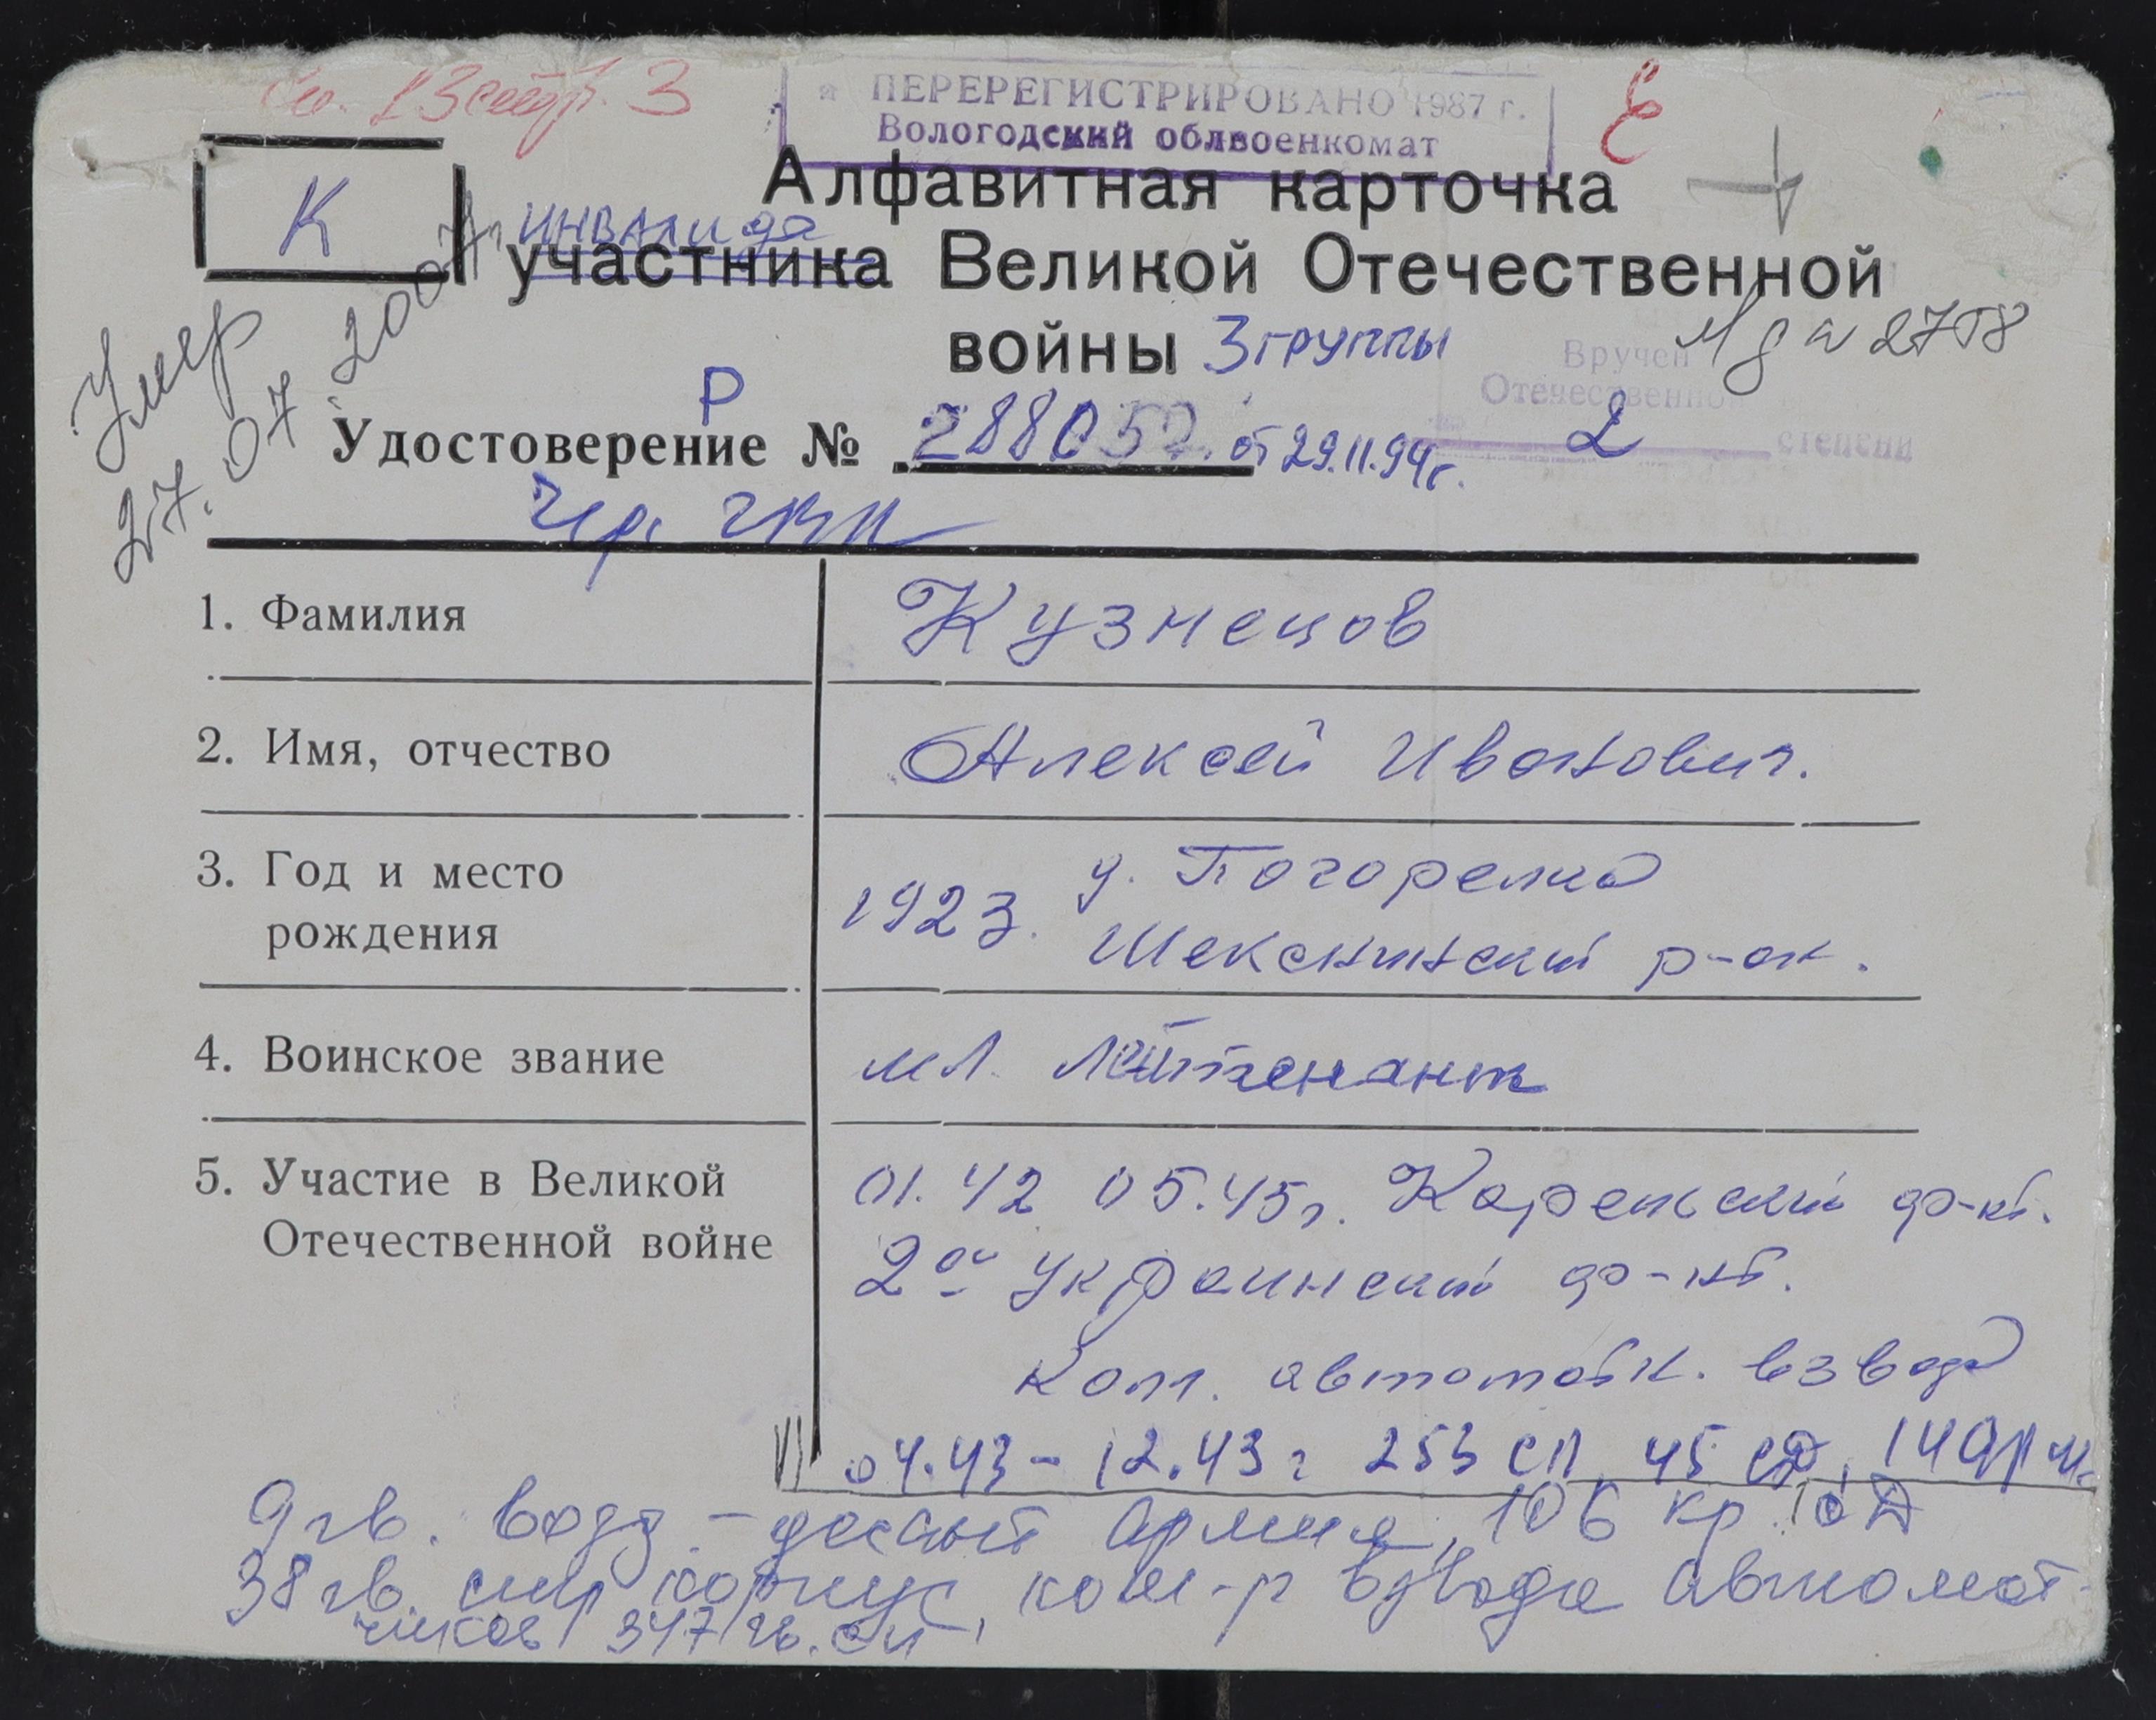 ПЕРЕРЕГИСТРИРОВАНО 1987 г.
Вологодский облвоенкомат
К
Алфавитная карточка
инвалида
участника Великой Отечественной
войны 3 группы
Умер
27.07.2007г.
Вручен
Отечественно
2 степени
Р
Удостоверение № 288052 от 29.11.94г.
1. Фамилия Кузнецов
2. Имя, отчество Алексей Иванович.
3. Год и место рождения 1923. д. Погорелка
Шекснинский р-он.
4. Воинское звание мл. лейтенант
5. Участие в Великой Отечественной войне 01.42 05.45г. Карельский фр-нт.
2ой Украинский фр-нт.
Ком. автоматн. взвода
04.43 - 12.43 г 253 СП, 45 СД, 14 арм.
9 гв. возд. - десант армия, 106 кр
38 гв. стр корпус, ком-р взвода автомат-
чиков 347 гв. сп